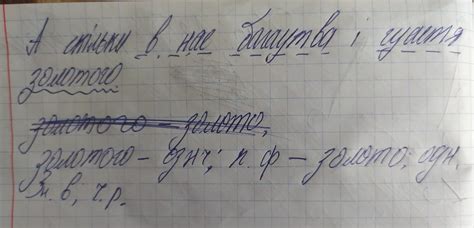 А стільки в нас багатства і щастя
золотого
золотого – золото,
золотого – озн.; п.ф – золото, одн.
н. в, ч.р.